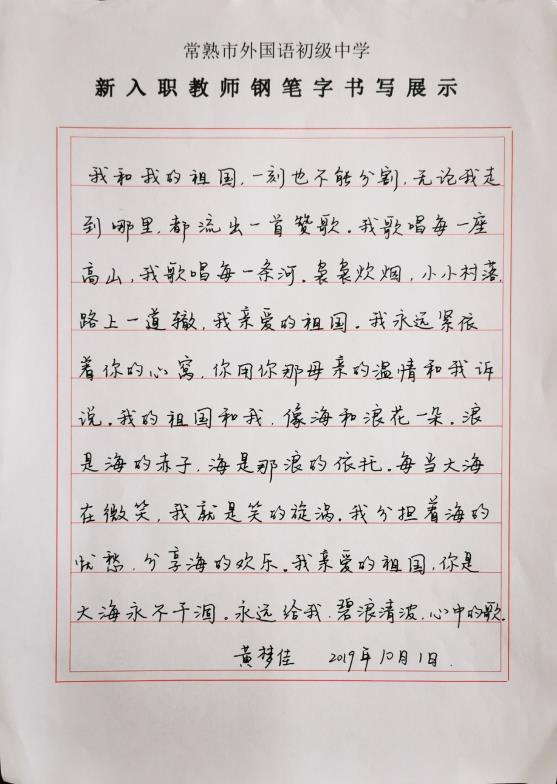 常熟市外国语初级中学
新入职教师钢笔字书写展示
我和我的祖国,一刻也不能分割,无论我走
到哪里,都流出一首赞歌。我歌唱每一座
高山,我歌唱每一条河。袅袅炊烟,小小村落,
路上一道辙,我亲爱的祖国。我永远紧依
着你的心窝,你用你那母亲的温情和我诉
说。我的祖国和我,像海和浪花一朵。浪
是海的赤子,海是那浪的依托。每当大海
在微笑,我就是笑的旋涡。我分担着海的
忧愁,分享海的欢乐。我亲爱的祖国,你是
大海永不干涸。永远给我,碧浪清波,心中的歌。
黄梦佳 2019年10月1日.